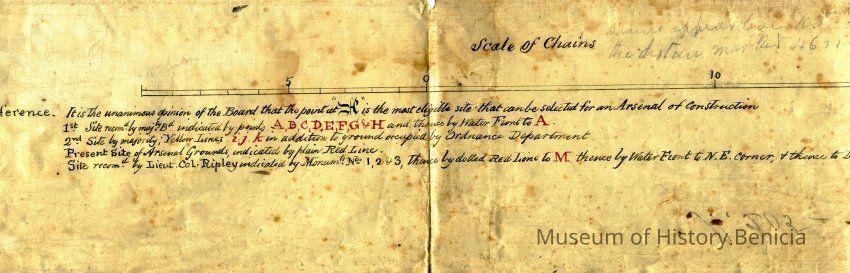 Scale of Chains
5 0 10
ference. It is the unanimous opinion of the Board that the point at "K" is the most eligible site that can be selected for an Arsenal of Construction
1st Site recomd by majy Bd indicated by points A, B, C, D, E, F, G & H and thence by Water Front to A.
2nd Site by majority, Yellow Lines i, j, k in addition to ground occupied by Ordnance Department.
Present Site of Arsenal Grounds, indicated by plain Red Line.
Site recomd by Lieut. Col. Ripley indicated by Monumts No 1, 2 & 3, Thence by dotted Red Line to M thence by Water Front to N.E. Corner, & thence to
Museum of History Benicia